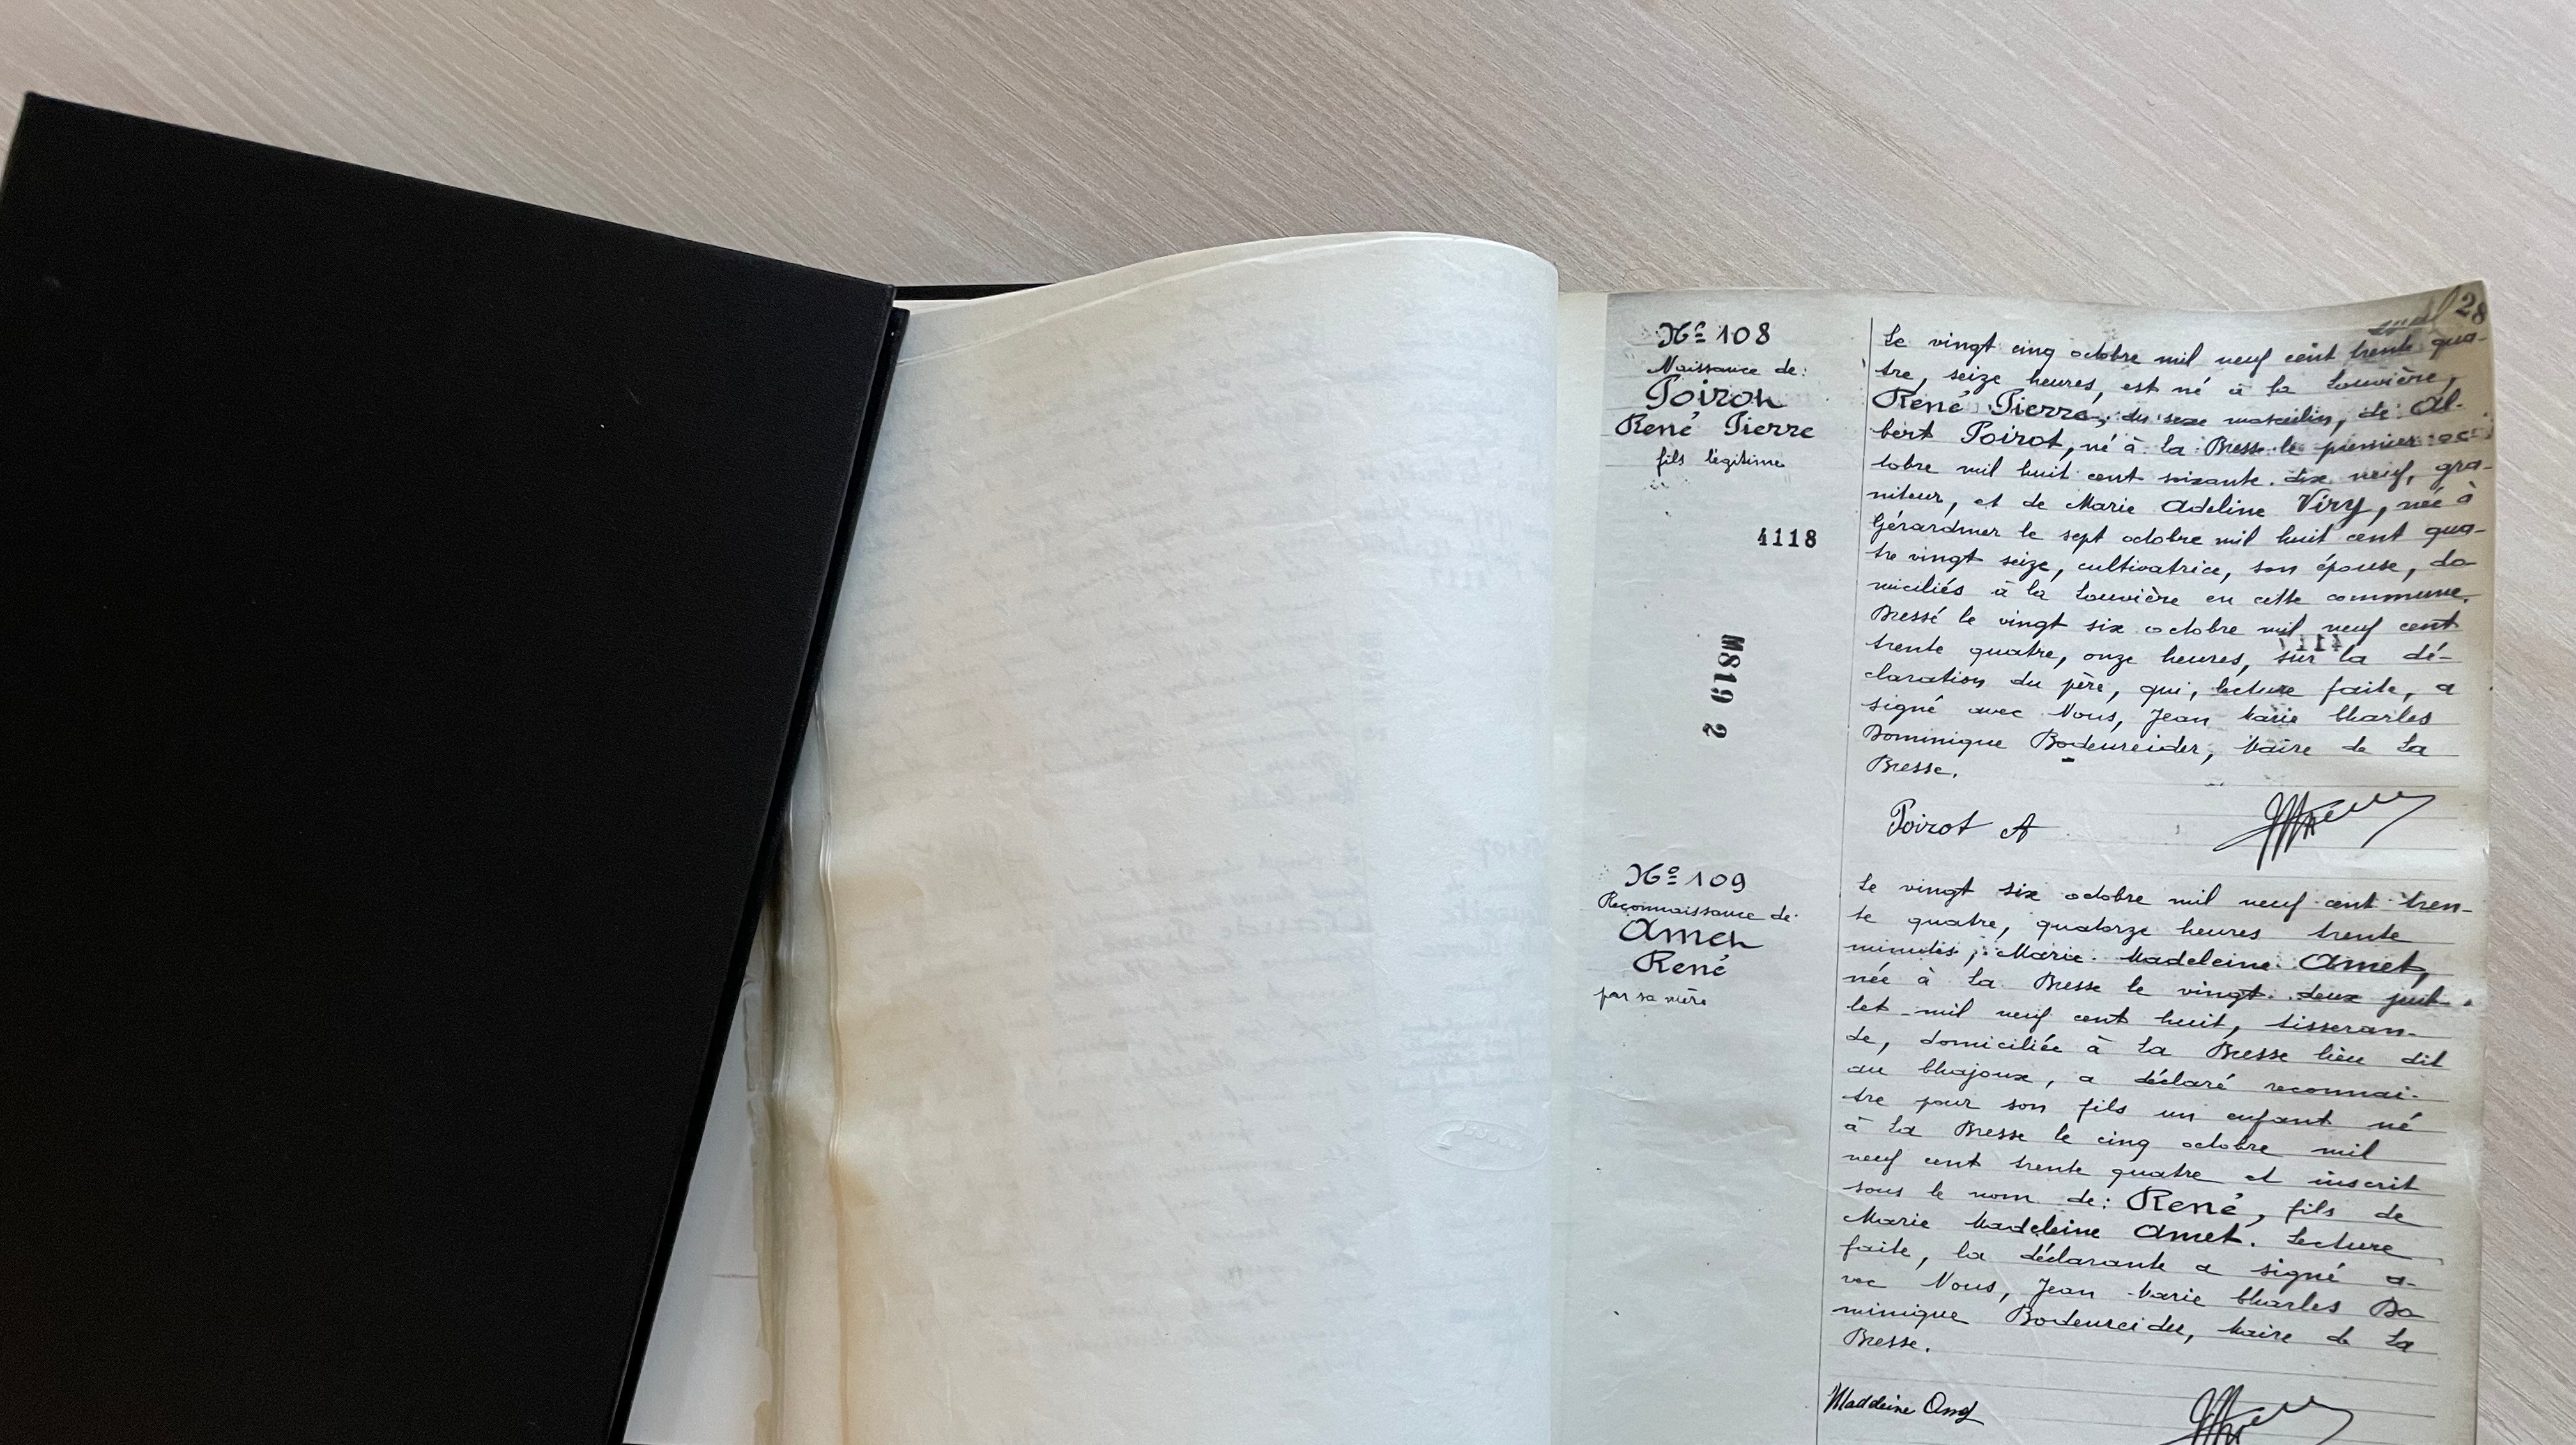 28
Nº 108
Naissance de:
Poirot
René Pierre
fils légitime
4118
M819 2
Le vingt cinq octobre mil neuf cent trente qua-
tre, seize heures, est né à la Louvière,
René Pierre, du sexe masculin, de Al-
bert Poirot, né à La Bresse le premier oc-
tobre mil huit cent soixante dix neuf, gra-
niteur, et de Marie Adeline Viry, née à
Gérardmer le sept octobre mil huit cent qua-
tre vingt seize, cultivatrice, son épouse, do-
miciliés à la Louvière en cette commune.
Dressé le vingt six octobre mil neuf cent
trente quatre, onze heures, sur la dé-
claration du père, qui, lecture faite, a
signé avec Nous, Jean Marie Charles
Dominique Bodenreider, Maire de La
Bresse.
Poirot A
Nº 109
Reconnaissance de:
Amet
René
par sa mère
Le vingt six octobre mil neuf cent tren-
te quatre, quatorze heures trente
minutes, Marie Madeleine Amet,
née à La Bresse le vingt deux juil-
let mil neuf cent huit, tisseran-
de, domiciliée à La Bresse lieu dit
au Chajoux, a déclaré reconnaî-
tre pour son fils un enfant né
à La Bresse le cinq octobre mil
neuf cent trente quatre et inscrit
sous le nom de: René, fils de
Marie Madeleine Amet. Lecture
faite, la déclarante a signé a-
vec Nous, Jean Marie Charles Do
minique Bodenreider, Maire de La
Bresse.
Madeleine Amet